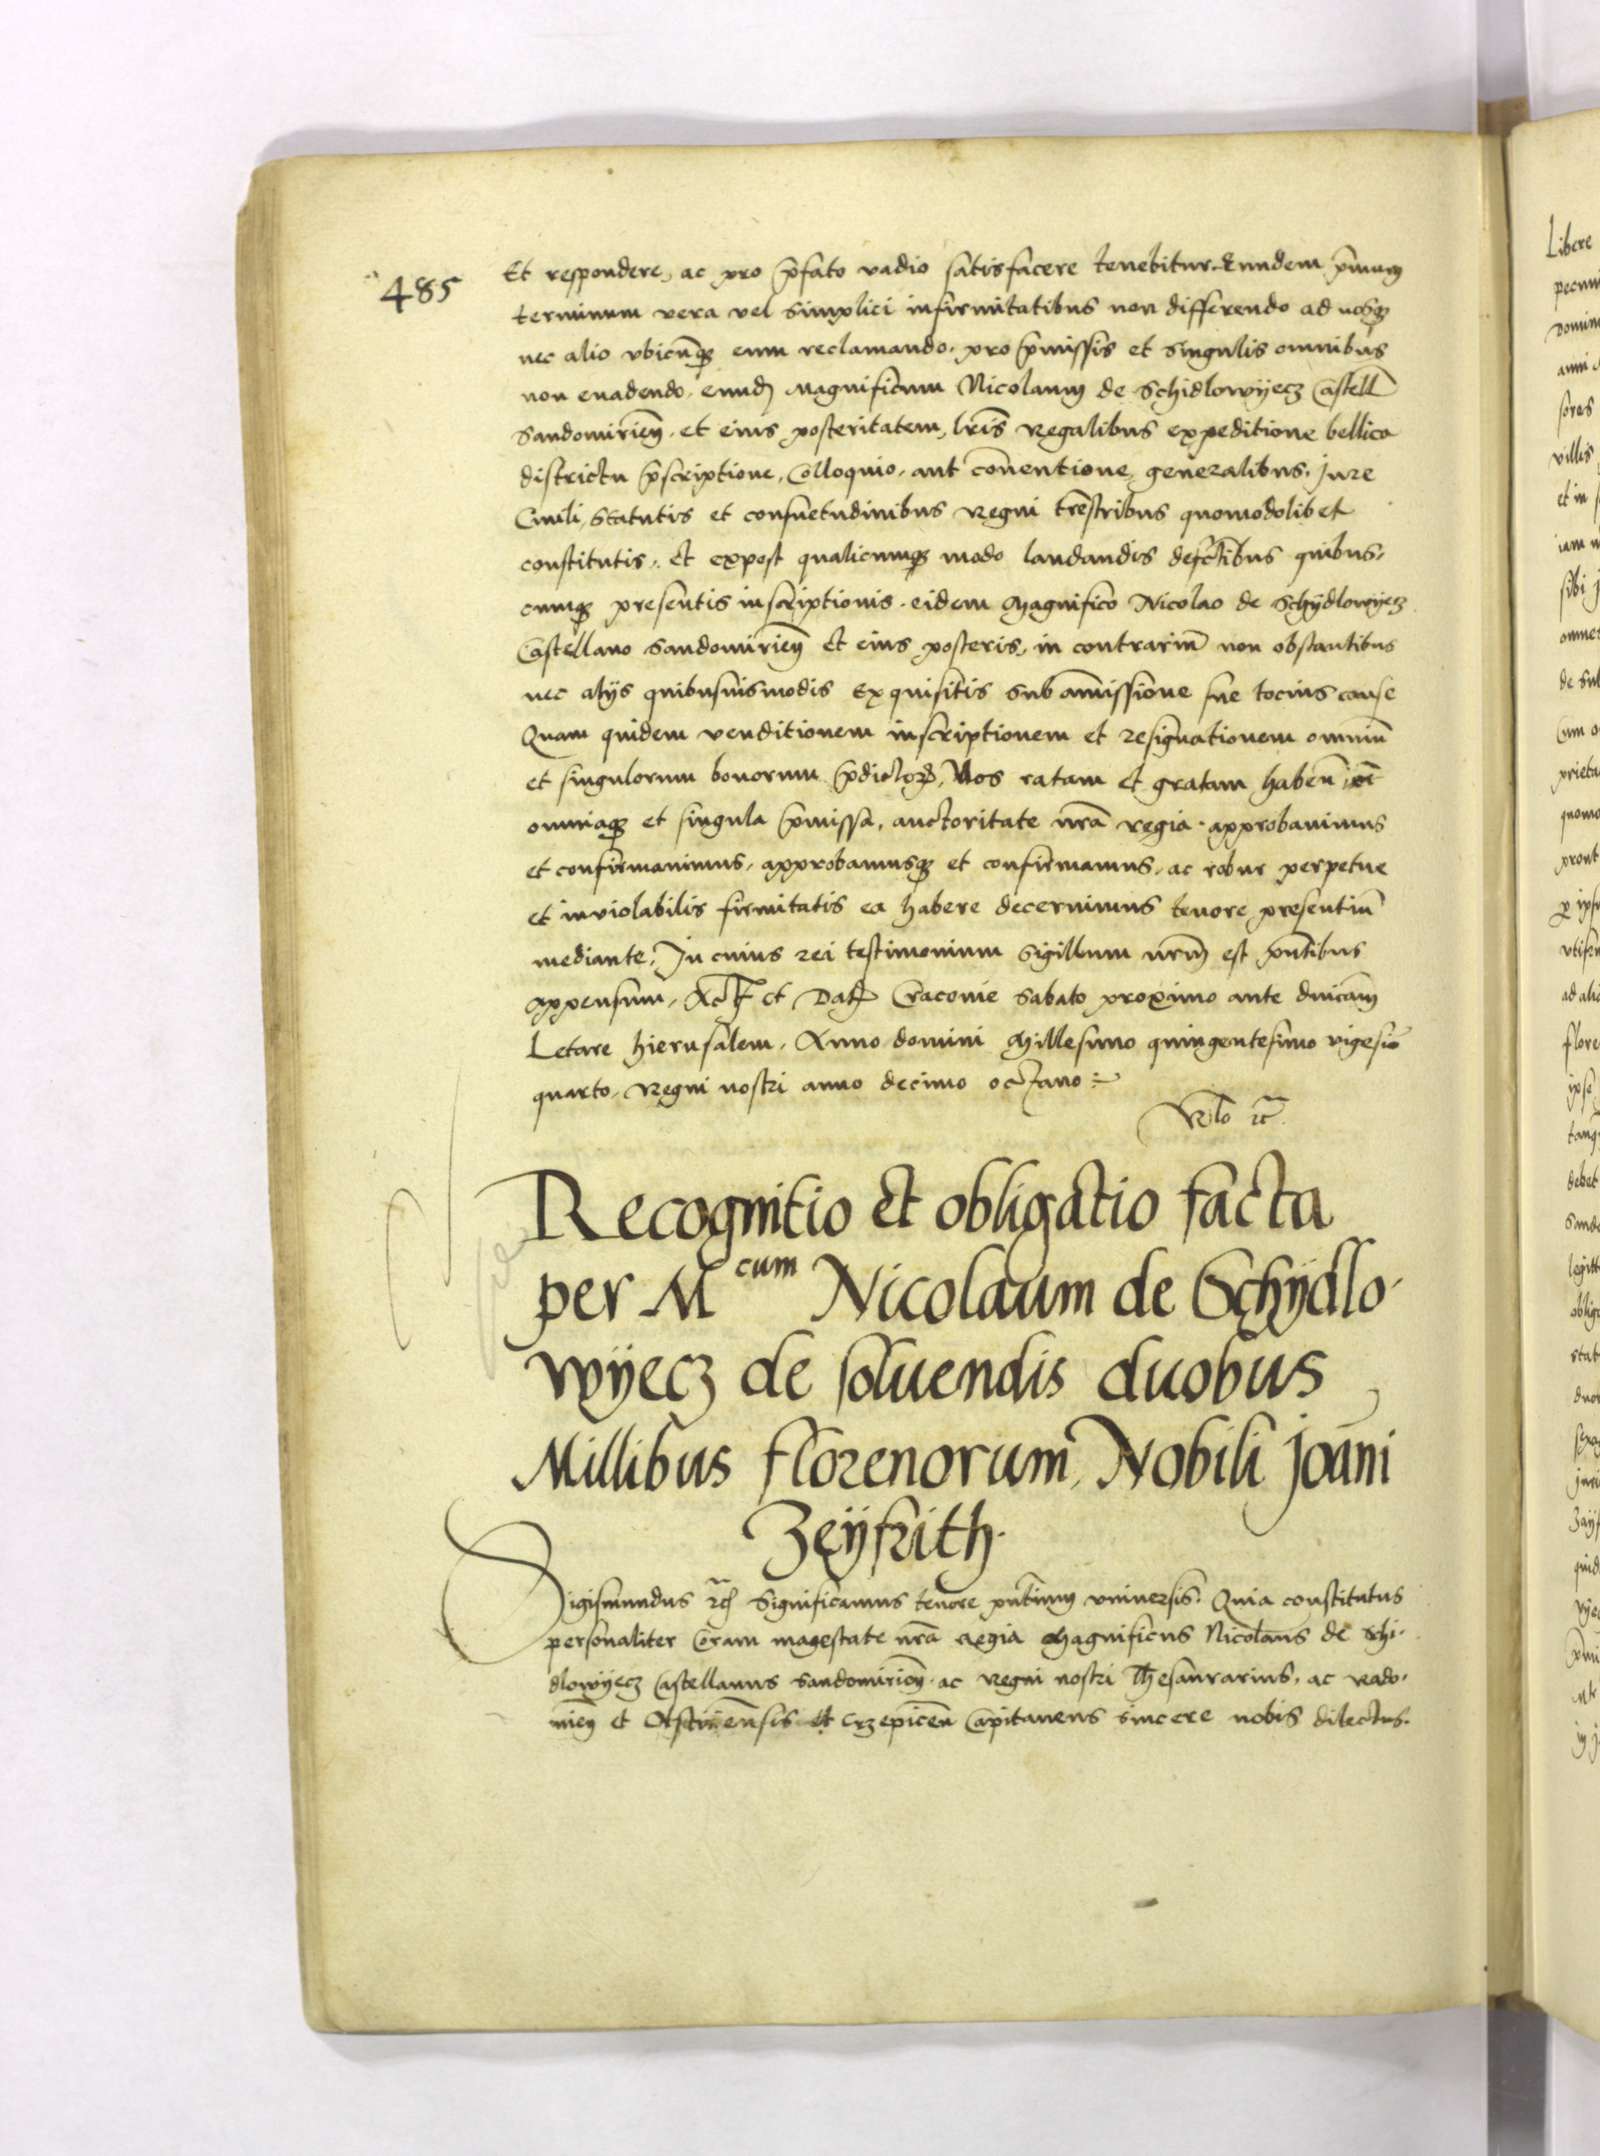 485
Et respondere, ac pro p̄fato vadio satisfacere tenebitur. Eundem p̄mum
terminum vera vel simplici infirmitatibus non differendo ad nosq
nec alio vbicūq eum reclamando. pro p̄missis et singulis omnibus
non euadendo. eund Magnificum Nicolaum de Schidlowyecz Castell
Sandomirien. et eius posteritatem, lr̄is Regalibus expeditione bellica
districtu p̄scriptione, Colloquio. aut conuentione generalibus. Jure
Ciuili, Statutis et consuetudinibus Regni trēstribus quomodolibet
constitutis. et expost qualicumq modo laudandis defectibus quibus,
cumq presentis inscriptionis. eidem Magnifico Nicolao de Schydlowyecz
Castellano Sandomirien et eius posteris, in contrariū non obstantibus
nec alijs quibusuismodis exquisitis sub amissione sue tocius cause
Quam quidem venditionem inscriptionem et resignationem omniū
et singulorum bonorum p̄dictor, Nos ratam et gratam haben̄
omniaq et singula p̄missa, auctoritate nr̄a regia. approbauimus
et confirmauimus. approbamusq et confirmamus, ac robur perpetue
et inviolabilis firmitatis ea habere decernimus tenore presentiū
mediante. In cuius rei testimonium Sigillum nr̄m est pn̄tibus
appensum. Act et Dat Cracouie Sabato proximo ante dnicam
Letare hierusalem. Anno domini Millesimo quingentesimo vigesiō
quarto. Regni nostri anno decimo octauo
Rlo rc̄
Recognitio et obligatio facta
per Mcum Nicolaum de Schydlo-
wyecz de soluendis duobus
Millibus florenorum, Nobili joāni
Zeyfrith.
Sigismundus rc̄ Significamus tenore pn̄tium vniuersis. Quia constitutus
personaliter Coram magestate nr̄a regia Magnificus Nicolaus de Schi-
dlowyecz Castellanus Sandomirien. ac Regni nostri Thesaurarius. ac Rado-
mien et Olstinensis et Crzepicen Capitaneus sincere nobis dilectus.